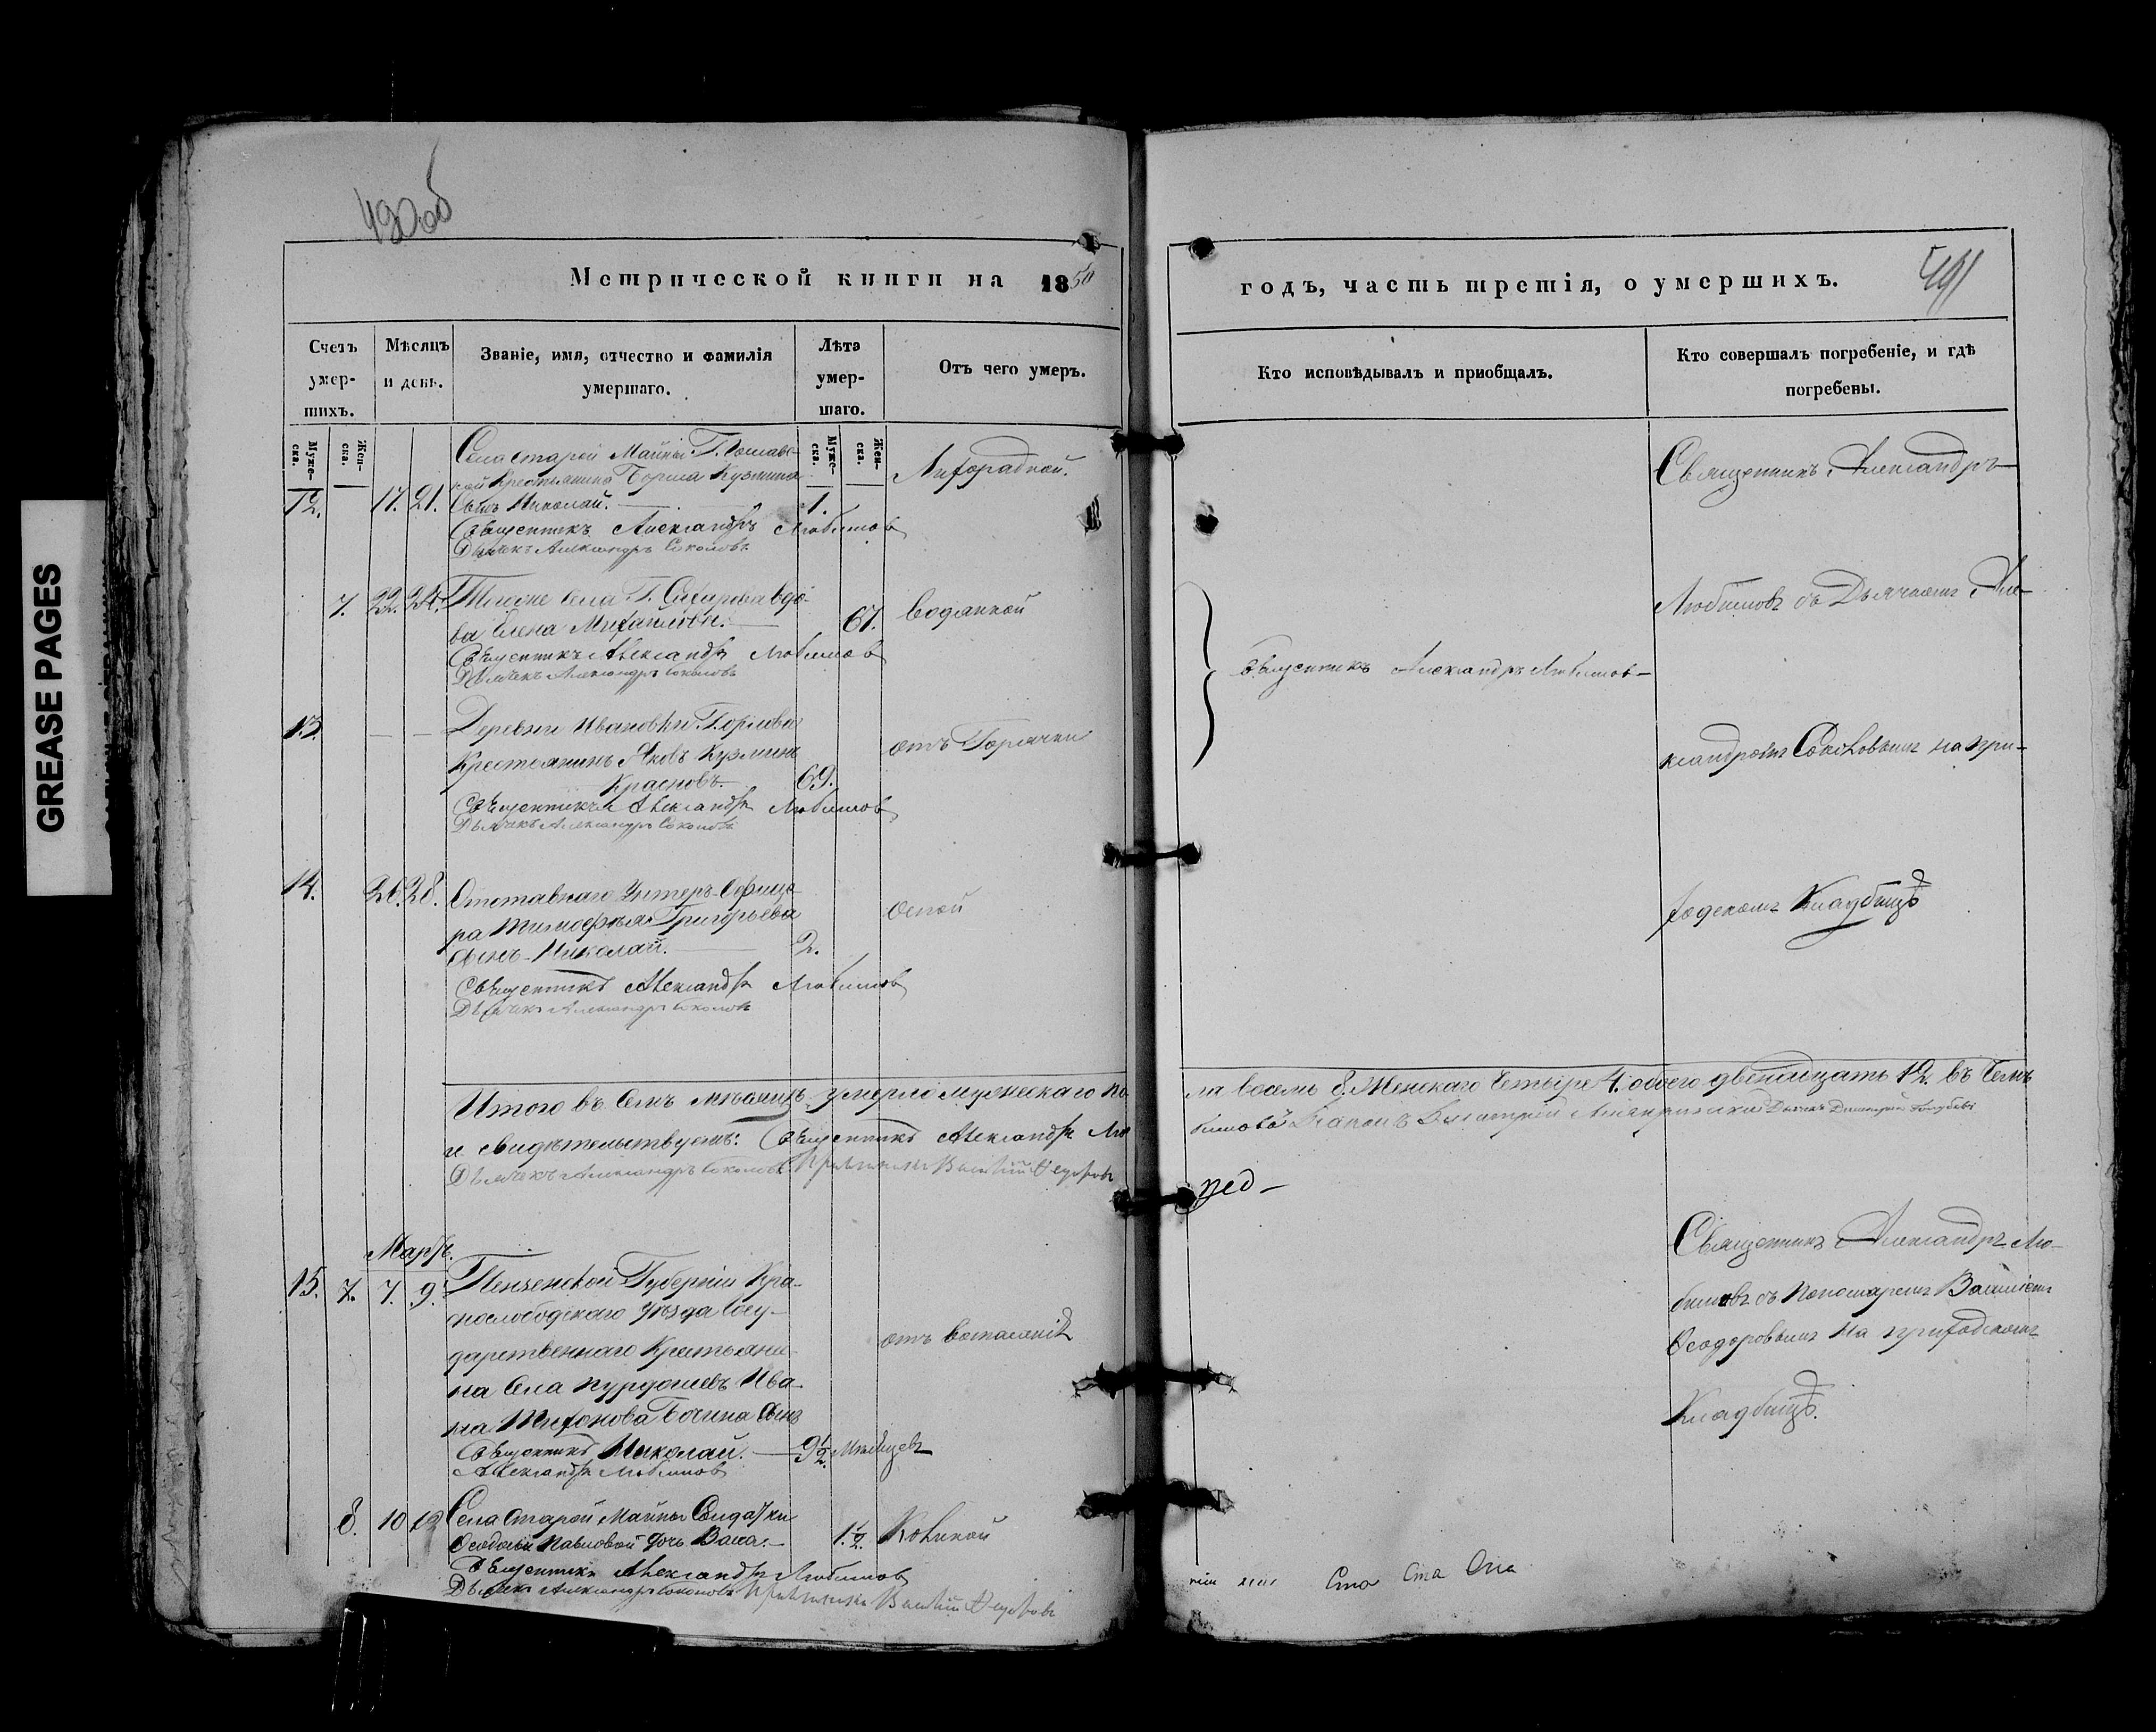 GREASE PAGES
490 об
491
Метрической книги на 1850
годъ, часть третія, о умершихъ.
Счетъ умер-шихъ.
Мѣсяцъ и день.
Званіе, имя, отчество и фамилія умершаго.
Лѣта умер-шаго.
Отъ чего умеръ.
Кто исповѣдывалъ и приобщалъ.
Кто совершалъ погребеніе, и гдѣ погребены.
Муже-ска.
Жен-ска.
Муже-ска.
Жен-ска.
Села Старой Майны Г.
Крестьянина Бориса Кузмина
12. 17. 21. Сынъ Николай. 1. Лихорадкой.
Священникъ Александръ Любимовъ
Дьячекъ Александръ Соколовъ
7. 22. 24. Тогоже Села Г. вдо-
ва Елена Михайлова. 67. водянкой
Священникъ Александръ Любимовъ
Дьячекъ Александръ Соколовъ
13. — — Деревни Ивановки Г.
Крестьянинъ Яковъ Кузминъ
Красновъ. 69. отъ Горячки
Священникъ Александръ Любимовъ
Дьячекъ Александръ Соколовъ
14. 26. 28. Отставнаго Унтеръ-Офице-
ра Тимофѣя Григорьева
сынъ Николай. 2. оспой
Священникъ Александръ Любимовъ
Дьячекъ Александръ Соколовъ
Священникъ Александръ Любимовъ
Священникъ Александръ
Любимовъ съ Дьячкомъ Але-
ксандромъ Соколовымъ на при-
ходскомъ Кладбищѣ
Итого въ Семъ мѣсяцѣ умерло мужескаго по-
ла восемь 8. Женскаго Четыре 4. обоего двенадцать 12. въ Чемъ
и свидѣтельствуемъ: Священникъ Александръ Лю-
бимовъ Дьячекъ Димитрій
Дьячекъ Александръ Соколовъ Василій Федоровъ
Мартъ.
15. 7. 7. 9. Пензенской Губерніи Кра-
снослободскаго уѣзда Госу-
дарственнаго Крестьяни-
на Села Пурдошевъ Ива-
на Тихонова Сынъ
Священникъ Николай. 9½ Мѣсяцевъ
Александръ Любимовъ
8. 10 12 Села Старой Майны Солдатки
Павловой дочь Васса. 1½. Коликой
Священникъ Александръ Любимовъ
Дьячекъ Александръ Соколовъ Василій Федоровъ
Священникъ Александръ Лю-
бимовъ съ Пономаремъ Василіемъ
Ѳеодоровымъ На приходскомъ
Кладбищѣ.